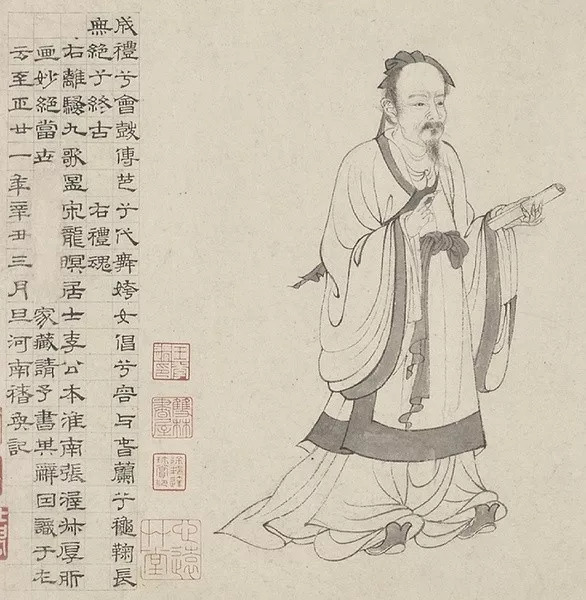 成禮兮會鼓傳芭兮代舞姱女倡兮容与春蘭兮穐鞠長
無絕兮終古 右禮魂
右離騷九歌圖宋龍眠居士李公本淮南張渥叔厚所
畫妙絕當世 家藏請予書其辭因識于左
云至正廿一年辛丑三月旦河南褚奐記
心遠艸堂